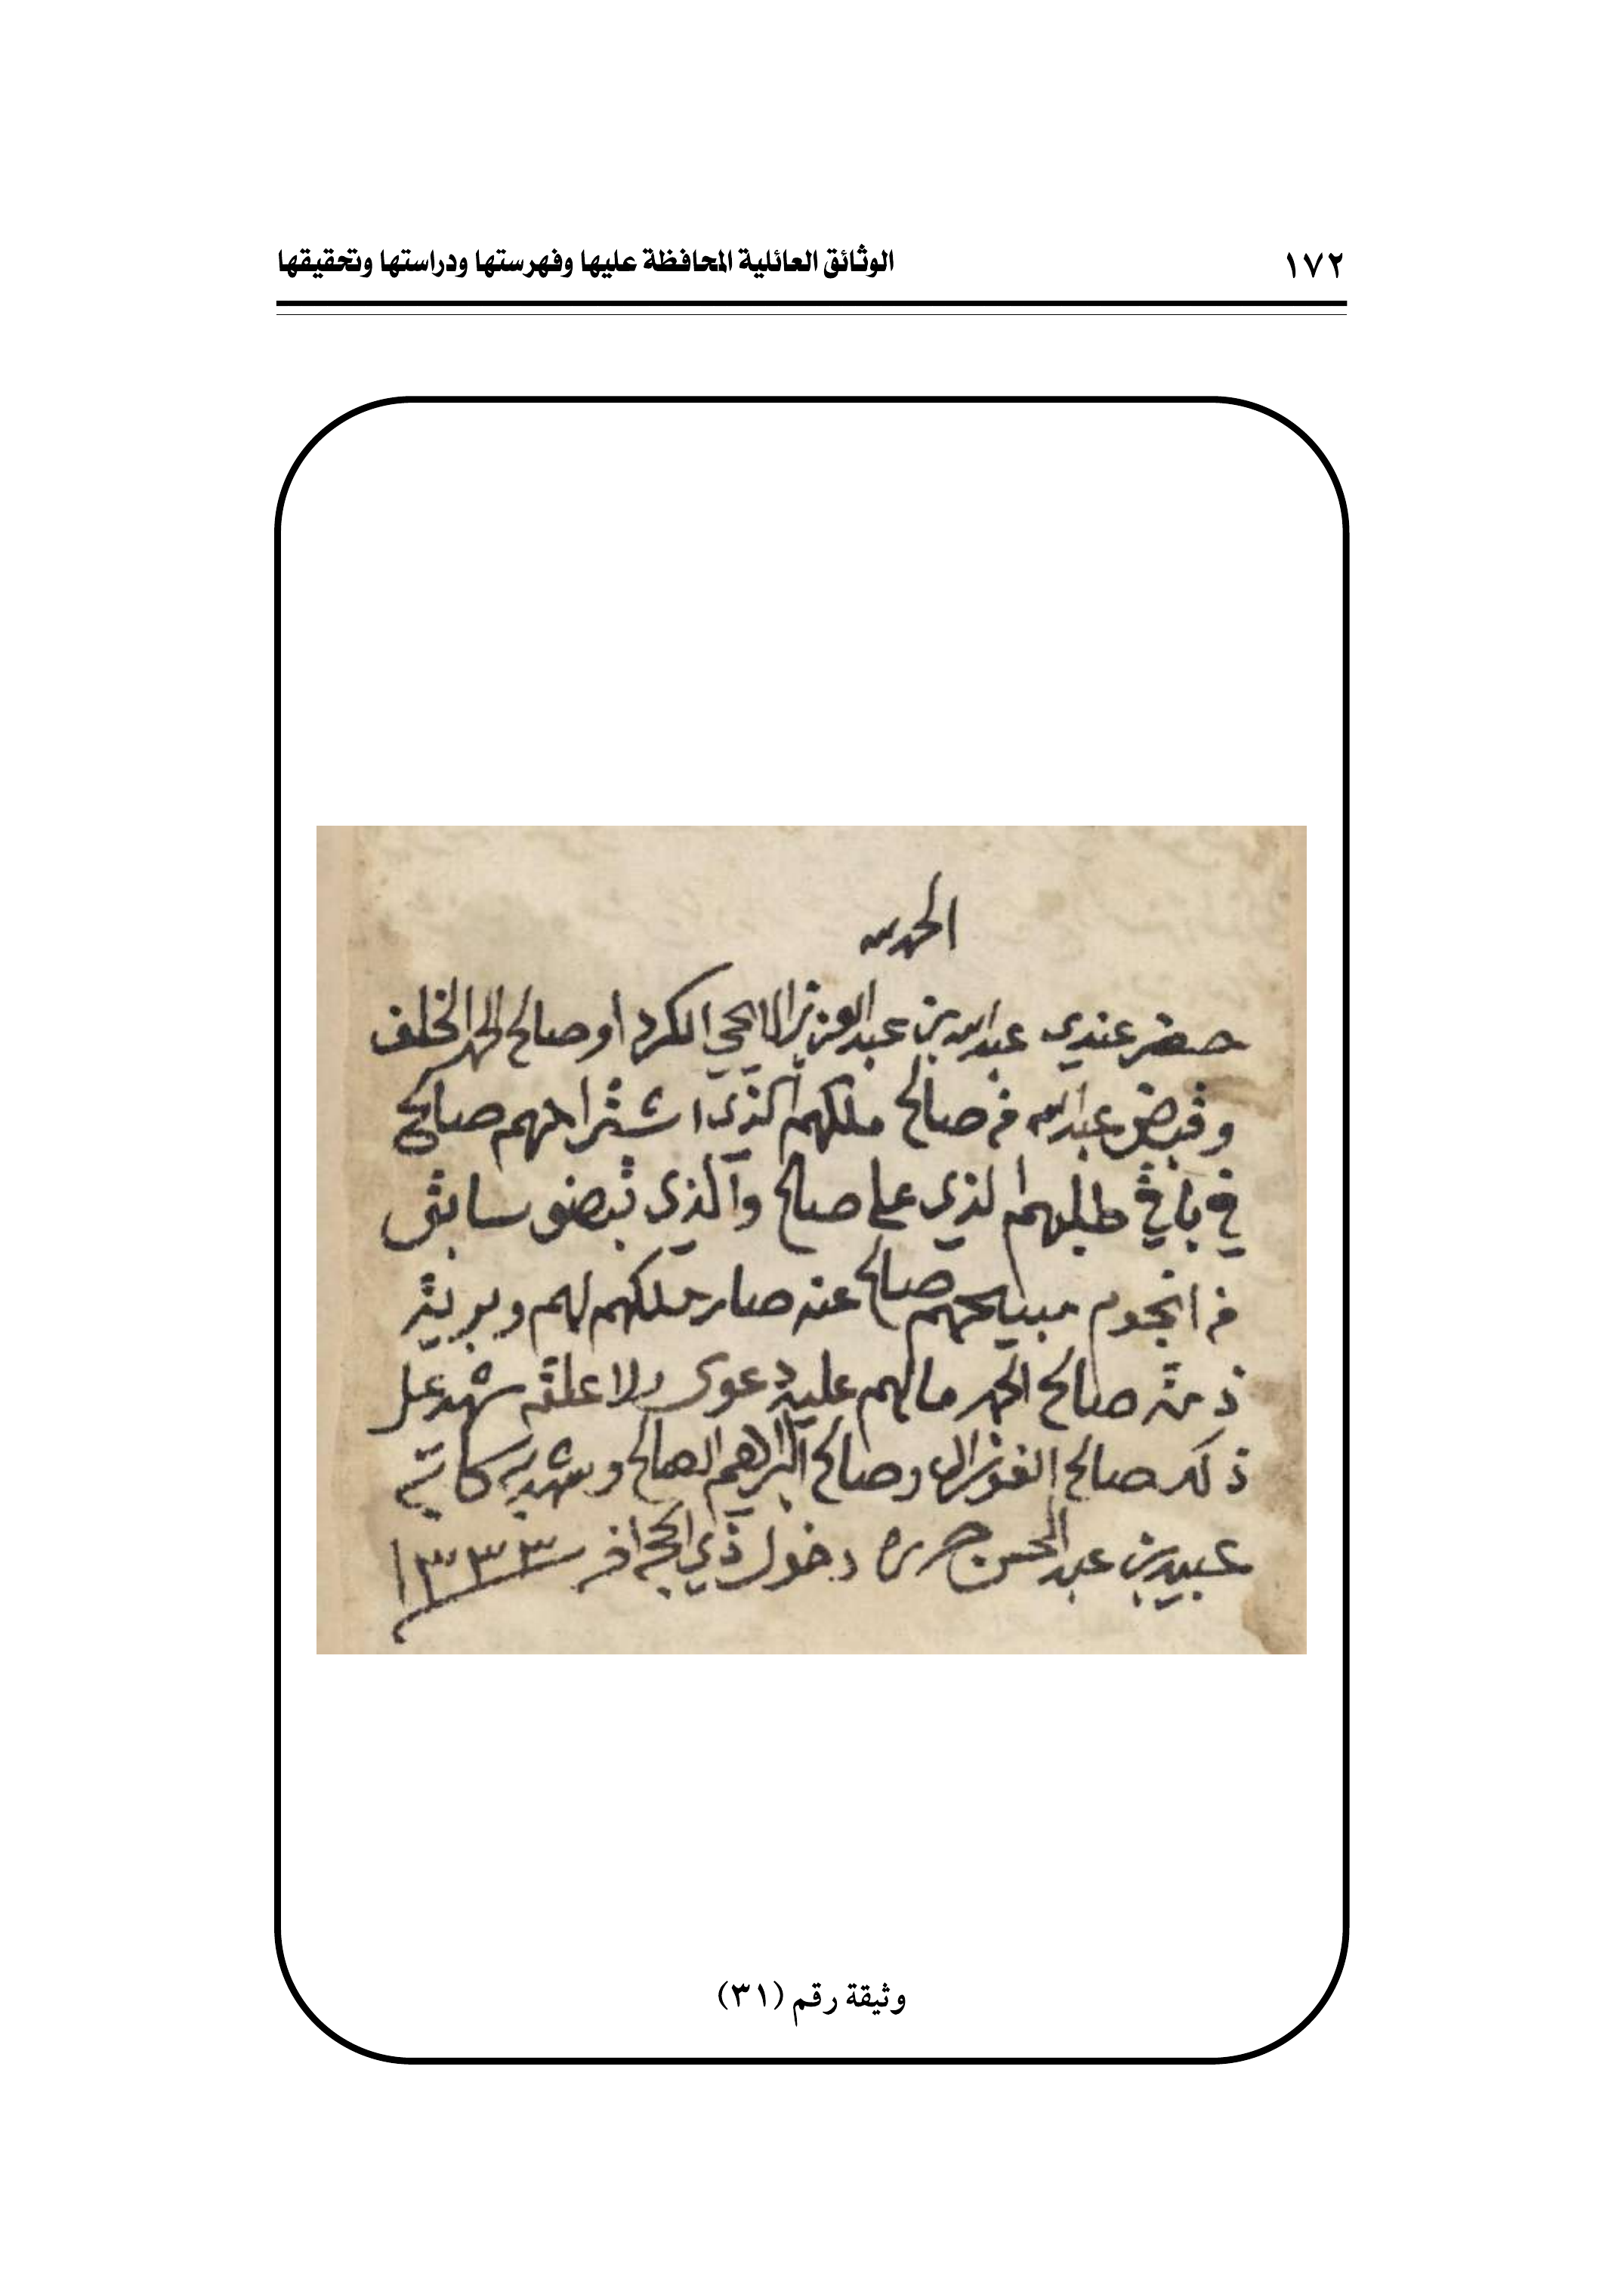 ١٧٢
الوثائق العائلية المحافظة عليها وفهرستها ودراستها وتحقيقها
الحمد لله
حضر عندي عبدالله بن عبدالعزيز الكرد او صالح الحمد الخلف
وقبض عبدالله من صالح ملكهم الذي اشترا منهم صالح
في باقي طلبهم الذي على صالح والذي قبضو سابق
من انجوم مبيحهم صالح عنه صار ملكهم لهم وبريت
ذمة صالح الحمد مالهم عليه دعوى ولا علقه شهد على
ذلك صالح الفوزان وصالح البراهيم الصالح وشهد به كاتبه
عبيد بن عبدالمحسن دخول ذي الحجة اخر ١٣٣٣
وثيقة رقم (٣١)